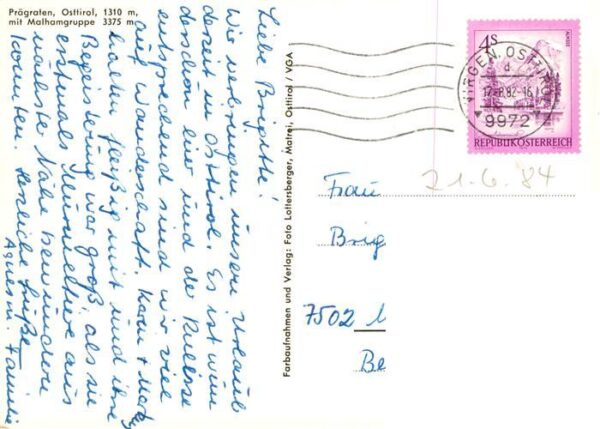 Prägraten, Osttirol, 1310 m,
mit Malhamgruppe 3375 m
Liebe Brigitte!
Wir verbringen unseren Urlaub
derzeit in Osttirol. Es ist wun
derschön hier und der Kulisse
entsprechend sind wir viel
auf Wanderschaft. Karin +
halten fleißig mit und ihre
Begeisterung war groß, als sie
erstmals Murmeltiere aus
nächster Nähe bewundern
konnten. Herzliche Grüße
Agnes m. Familie
Farbaufnahmen und Verlag: Foto Lottersberger, Matrei, Osttirol / VGA
4S
VIRGEN, OSTTIROL
d
17.-8.82-16
9972
REPUBLIK ÖSTERREICH
21.6.'84
Frau
Brig
7502
Be